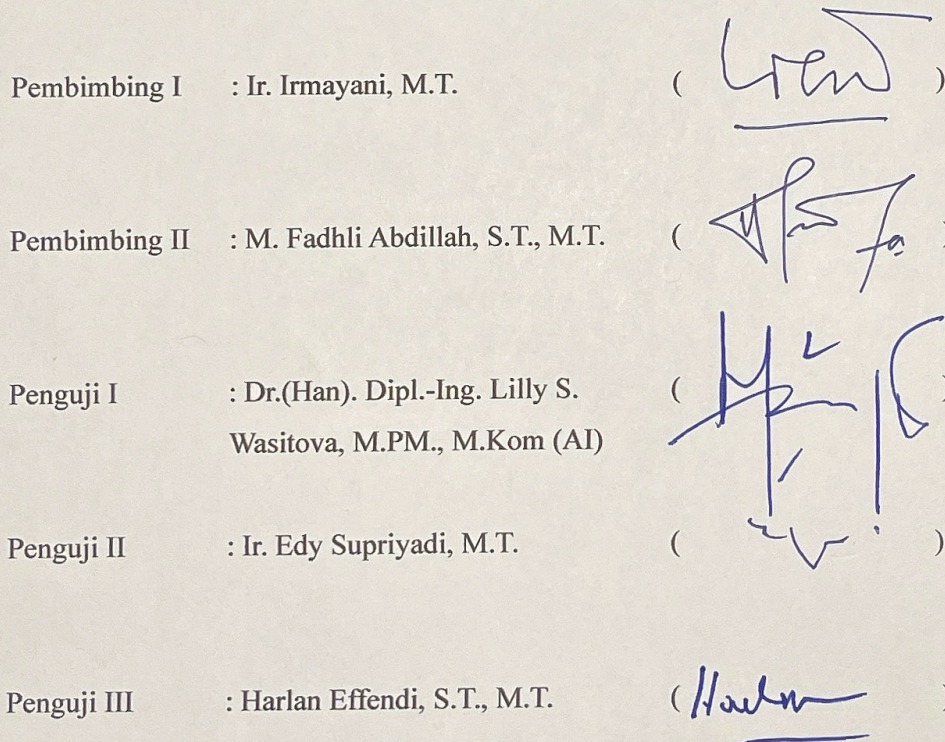 Pembimbing I : Ir. Irmayani, M.T. ( )
Pembimbing II : M. Fadhli Abdillah, S.T., M.T. (
Penguji I : Dr.(Han). Dipl.-Ing. Lilly S. (
Wasitova, M.PM., M.Kom (AI)
Penguji II : Ir. Edy Supriyadi, M.T. ( )
Penguji III : Harlan Effendi, S.T., M.T. (